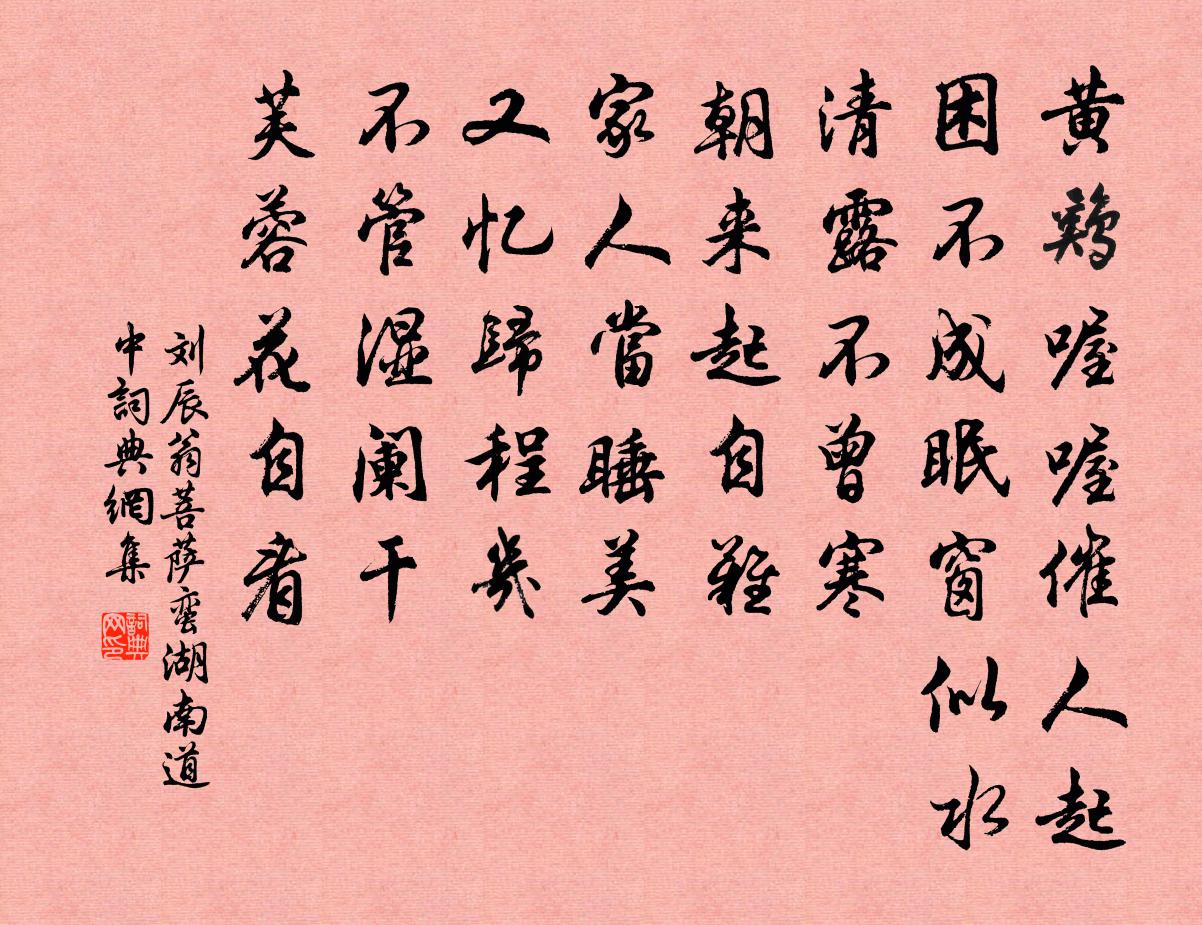 黄鷄喔喔催人起
困不成眠窗似水
清露不曾寒
朝来起自難
家人當睡美
又忆歸程幾
不管濕阑干
芙蓉花自看
刘辰翁菩萨蛮湖南道
中詞典網集
詞典网印